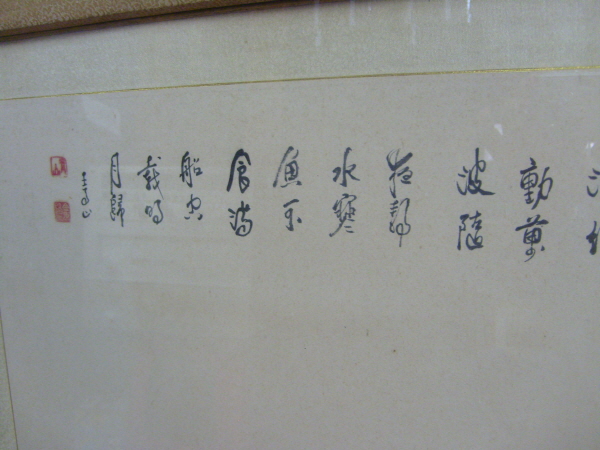 動萬
波隨
夜靜
水寒
魚不
食滿
船空
載明
月歸